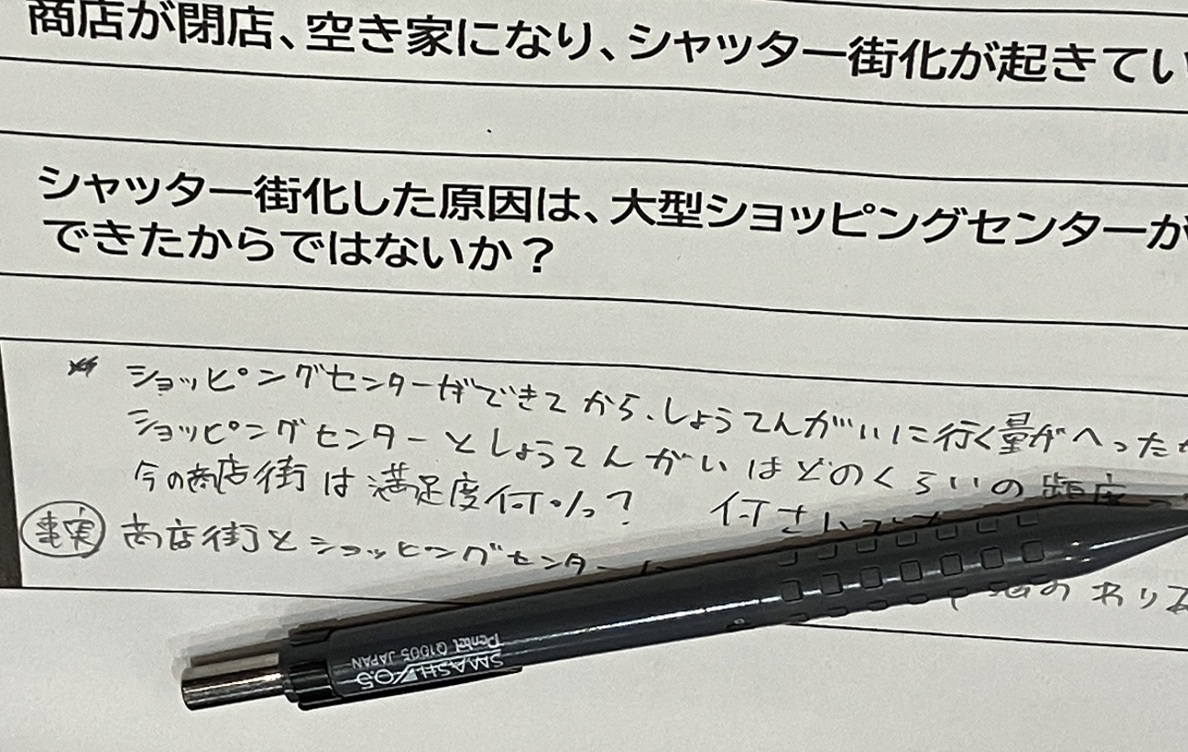 商店が閉店、空き家になり、シャッター街化が起きてい
シャッター街化した原因は、大型ショッピングセンターが
できたからではないか？
ショッピングセンターができてから、しょうてんがいに行く量がへったか
ショッピングセンターとしょうてんがいはどのくらいの頻度
今の商店街は満足度何%？ 何さい
事実 商店街とショッピングセンター
わり
SMASH 0.5
Pentel Q1005 JAPAN